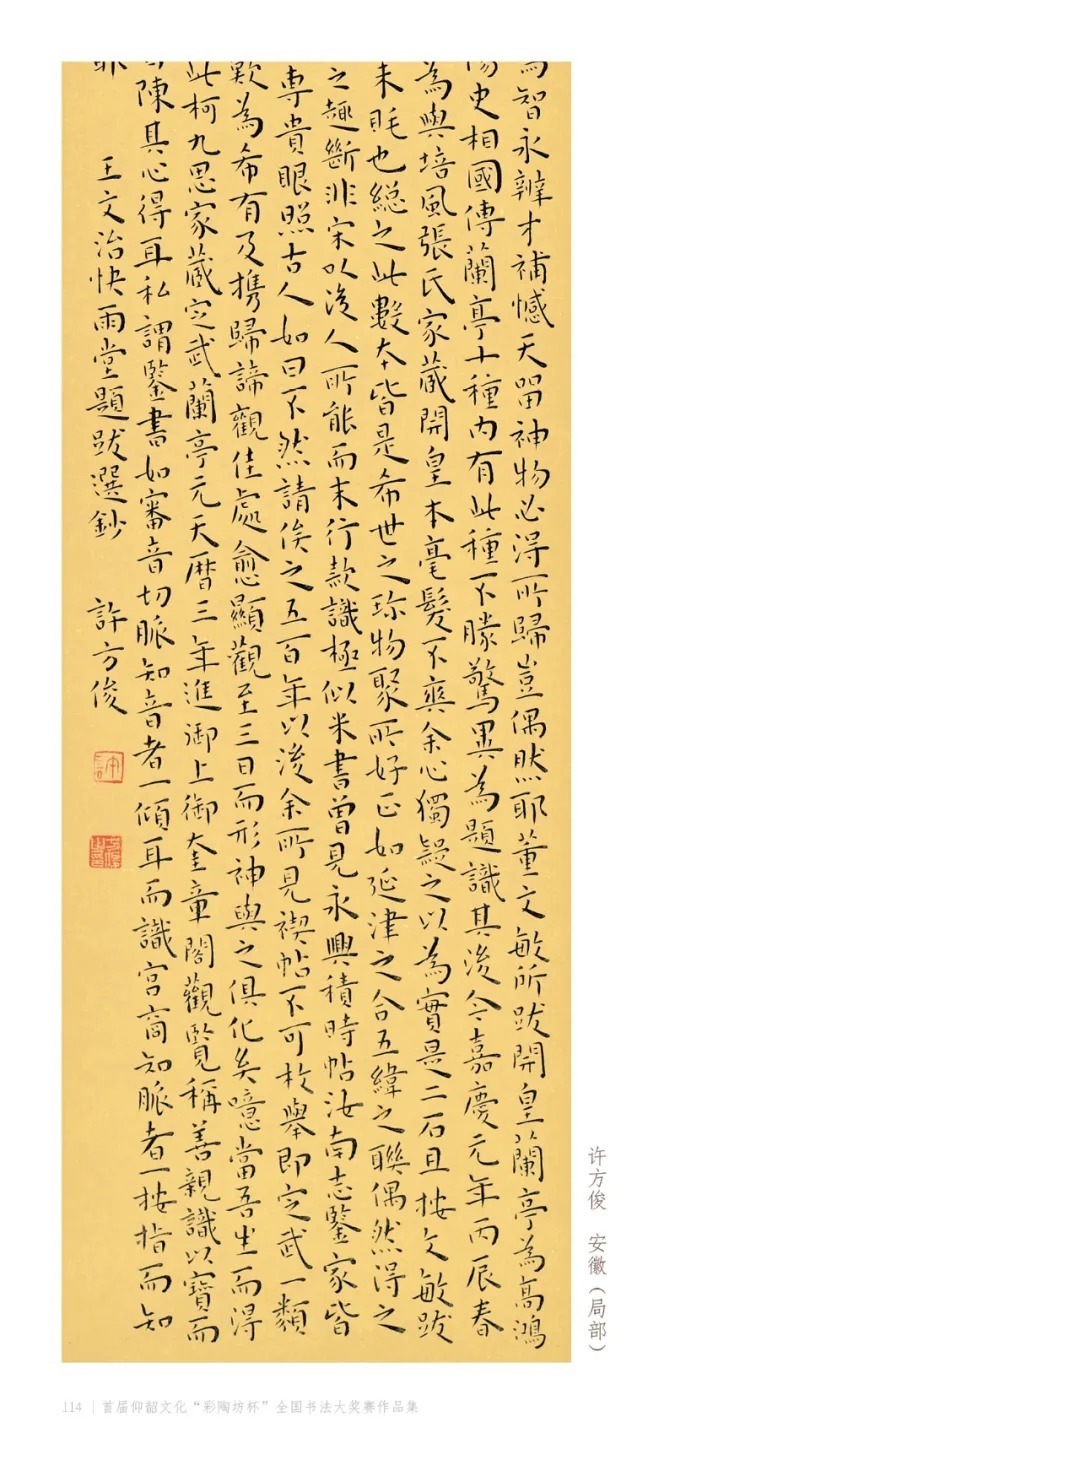 為智永辨才補憾天留神物必得所歸豈偶然耶董文敏所跋開皇蘭亭為高鴻
陽史相國傳蘭亭十種内有此種不勝驚異為題識其後今嘉慶元年丙辰春
為與培風張氏家藏開皇本毫髮不爽余心獨疑之以為實是二石且按文敏跋
未眊也總之此數本皆是希世之珎物聚所好正如延津之合五緯之聯偶然得之
之趣斷非宋以後人所能而末行款識極似米書曾見永興積時帖汝南志鑒家皆
專貴眼照古人如曰不然請俟之五百年以後余所見禊帖不可枚舉即定武一類
歎為希有及携歸諦觀佳處愈顯觀至三日而形神與之俱化矣噫當吾坐而得
此柯九思家藏定武蘭亭元天曆三年進御上御奎章閣觀覽稱善親識以寶而
陳其心得耳私謂鑒書如審音切脈知音者一傾耳而識宮商知脈者一按指而知
耶
王文治快雨堂題跋選鈔 許方俊
许方俊 安徽（局部）
114 | 首届仰韶文化“彩陶坊杯”全国书法大奖赛作品集